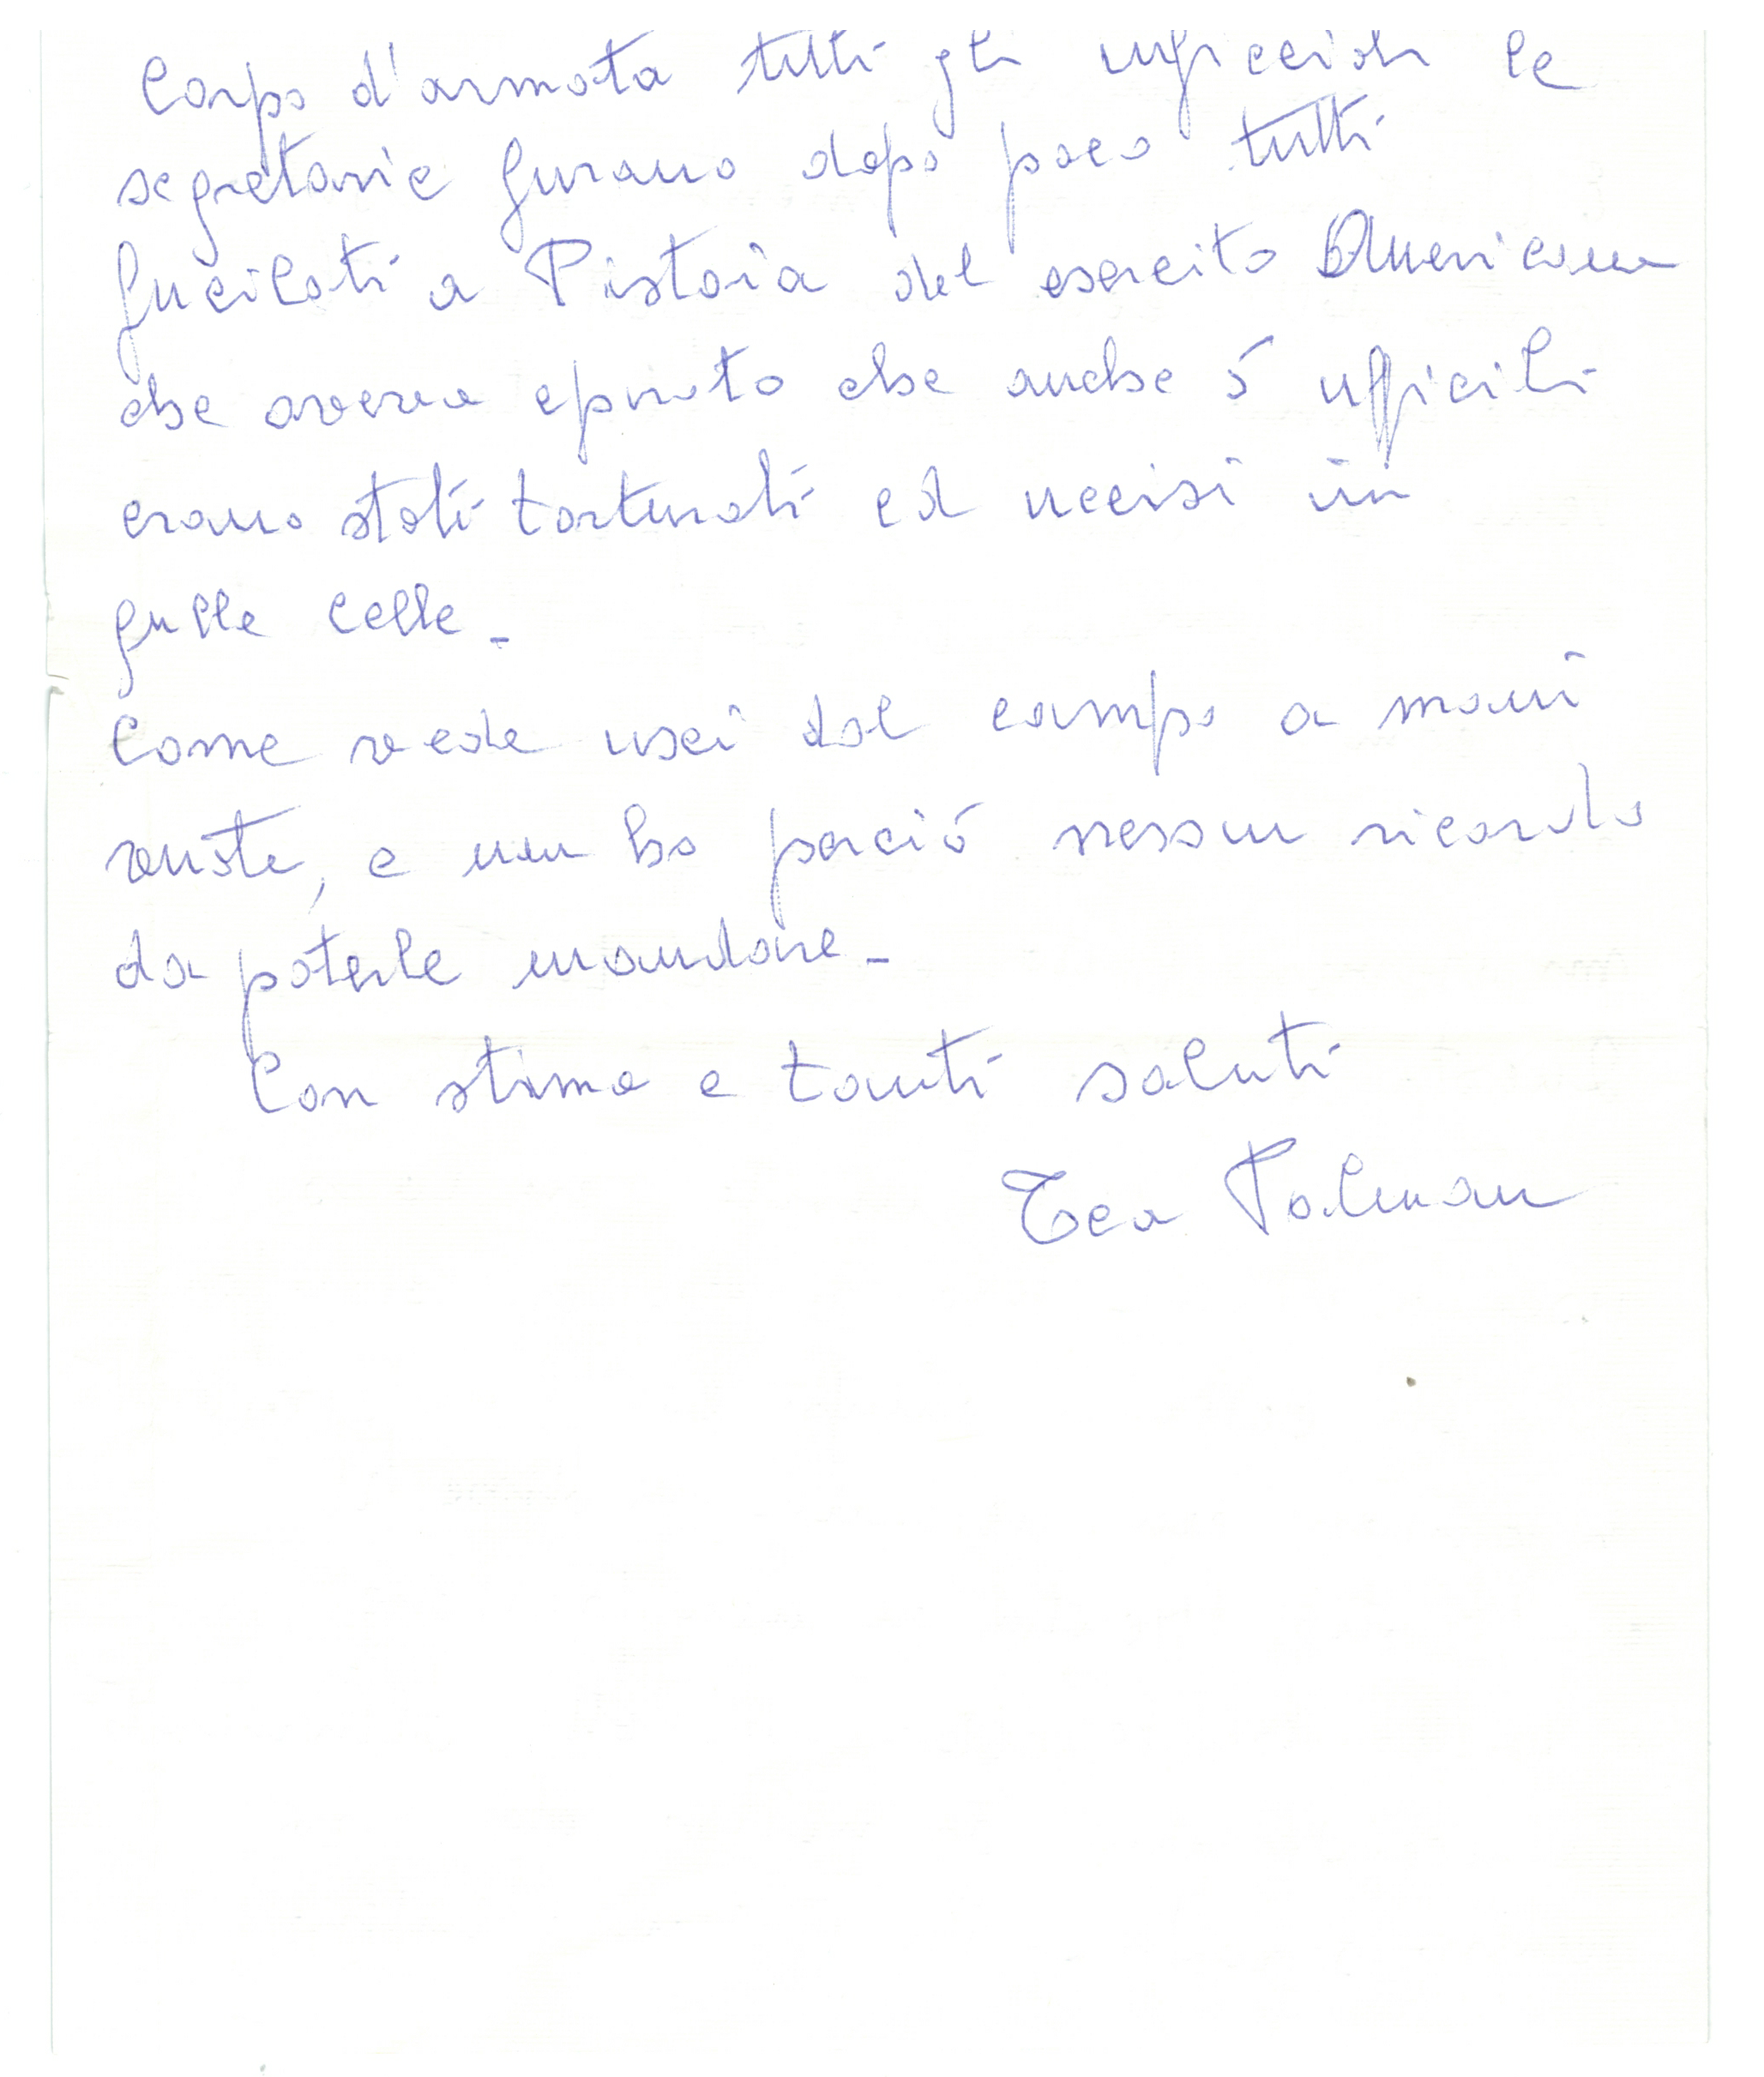 Corpo d'armata tutti gli ufficciali le
segretarie furano dopo poco tutti
fucilati a Pistoia del esercito Americano
che aveva epurato che anche 5 ufficiali
erano stati torturati ed uccisi in
quelle celle -
Come vede uscì dal campo a mani
vuote, e non ho perció nessun ricordo
da poterle mandare -
Con stima e tanti saluti
Tea Palman